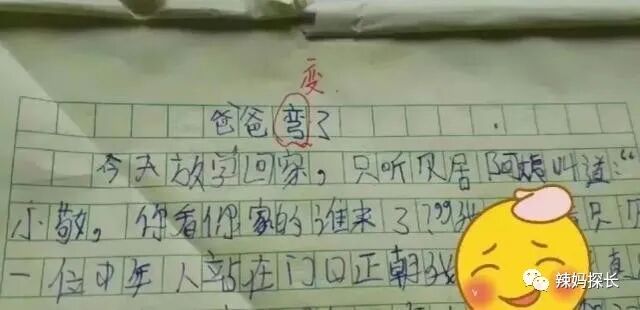 变
爸爸弯了
今天放学回家，只听贝居阿姨叫道：“
小敬，你看你家的谁来了??我 只见
一位中年人站在门口正朝我
辣妈探长